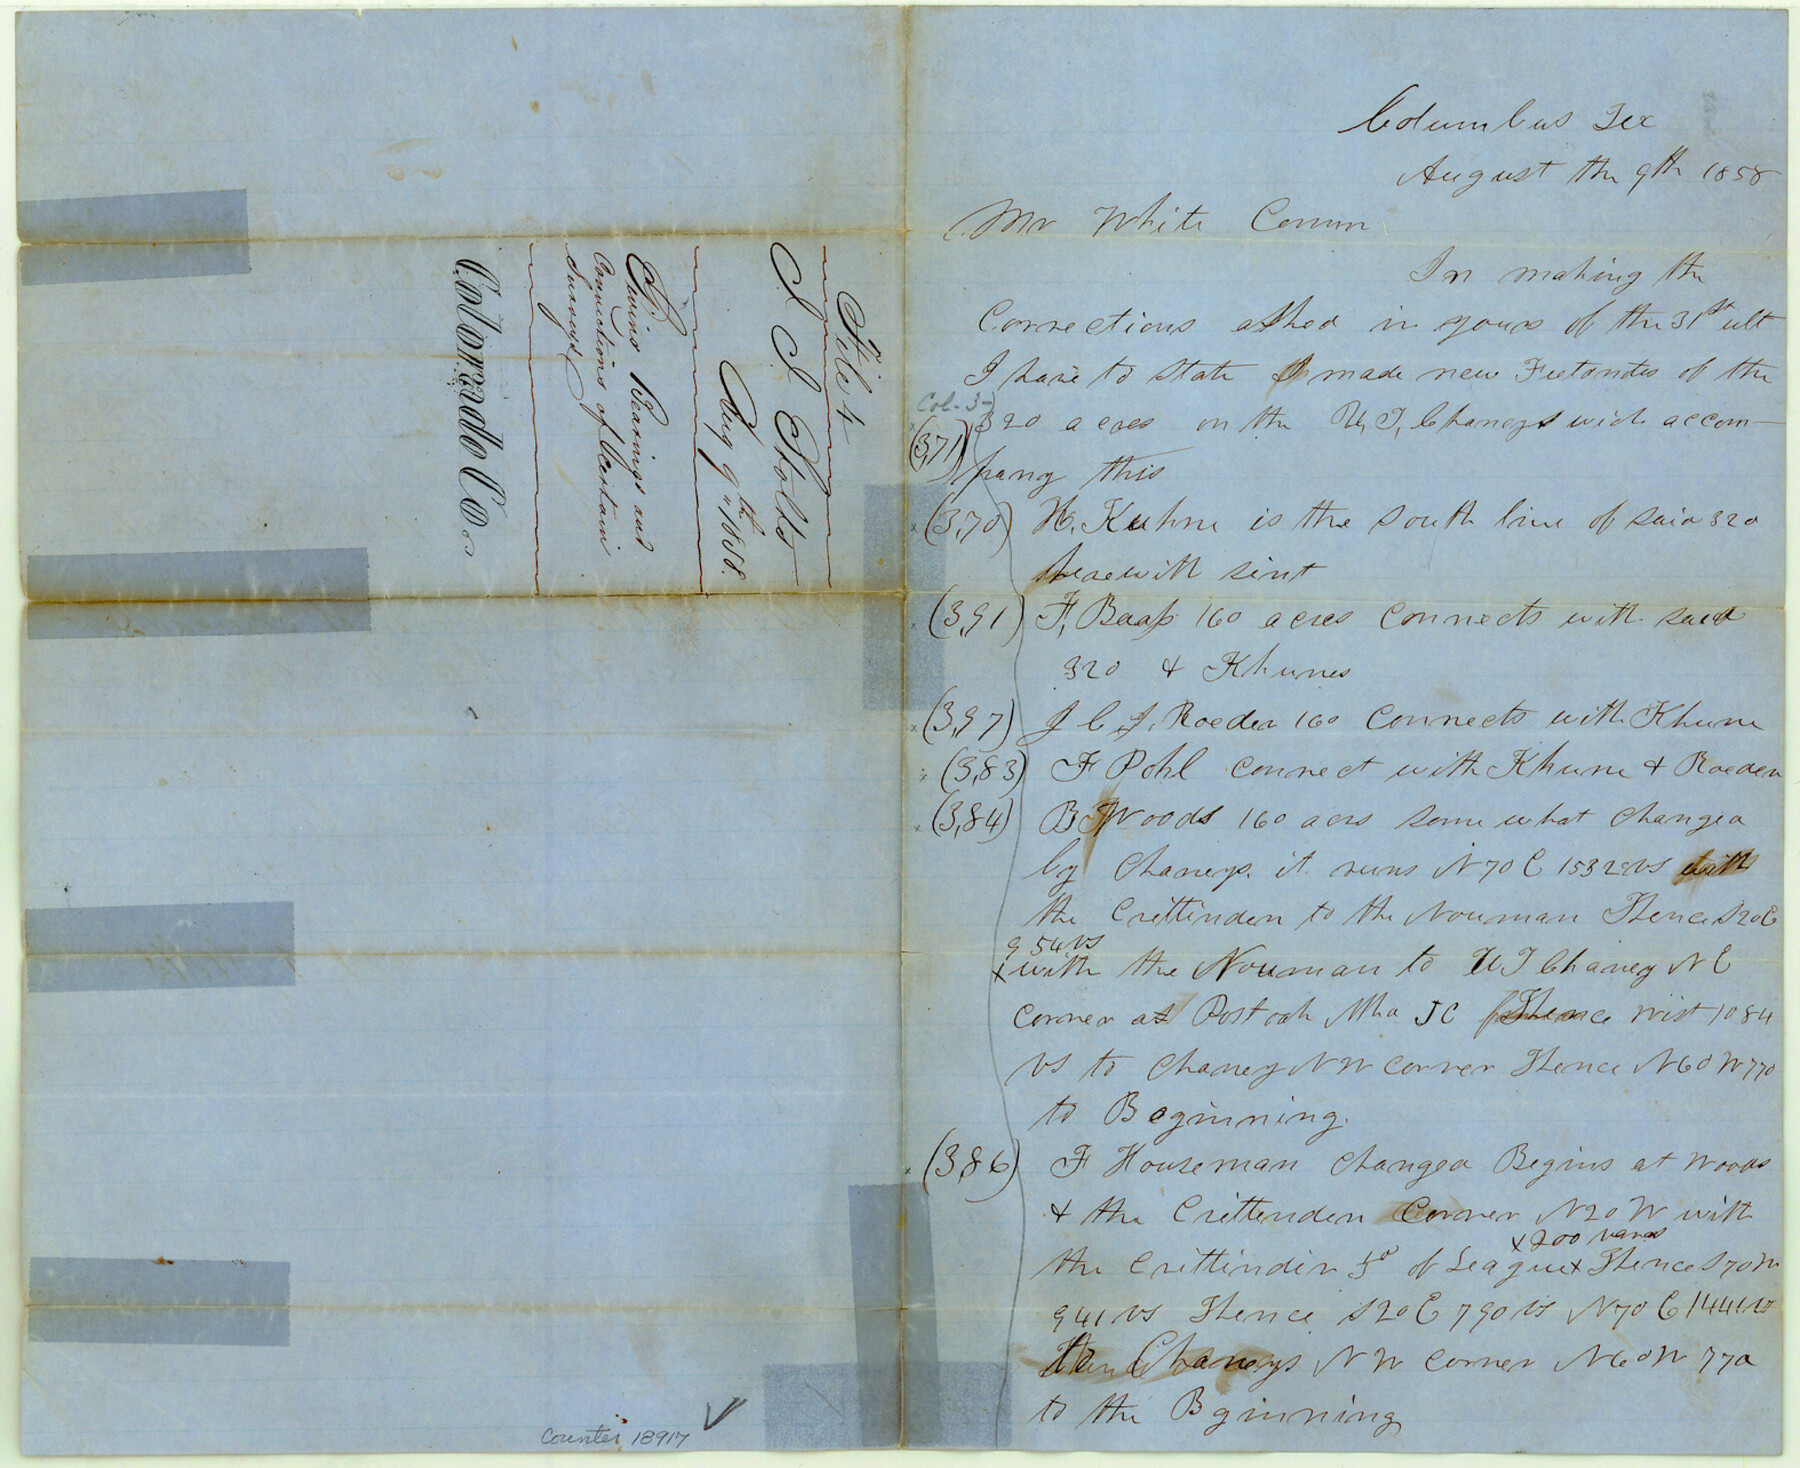 File 4
I I Stolts
Aug 9th 1858.
Giving Bearings and
Connections of Certain
Surveys
Colorado Co.
Counter 18917
Columbus Tex
August the 9th 1858
Mr White Comm
In making the
Corrections asked in yours of the 31st ult
I have to state I made new Fieldnotes of the
Col-3-
(371) 320 acres on the U, T, Chaneys wich accom-
pany this
x (3,70) H. Kuhne is the south line of said 320
herewith sent
x (3,91) F, Baap 160 acres connects with said
320 & Khunes
x (3,97) J C J. Roeder 160 connects with Khune
x (3,83) F Pohl connect with Khune & Roeder
x (3,84) B Woods 160 acrs some what changed
by Chaneys. it runs N70E 1532 vs with
the Crittinden to the Nouman Thence S20E
954 vs
x with the Nouman to U T Chaney N E
corner at Post oak Mkd JC Thence West 1084
vs to Chaney N W corner Thence N60W 770
to Beginning.
x (3,86) F Houseman changed Begins at Woods
& the Crittenden Corner N20W with
x 200 varas
the Crittinden of League x Thence S70W
941 vs Thence S20E 790 vs N70E 1441 vs
Chaneys N W corner N60W 770
to the Bginning